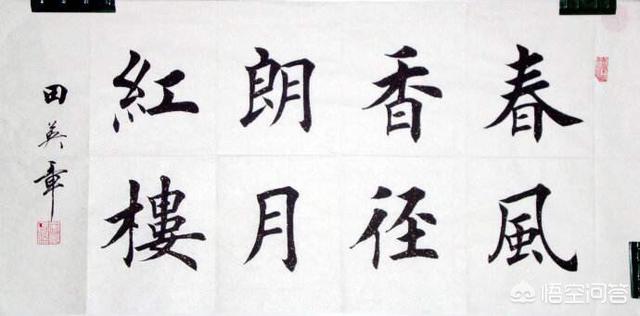 春風
香径
朗月
紅樓
田英章
悟空问答